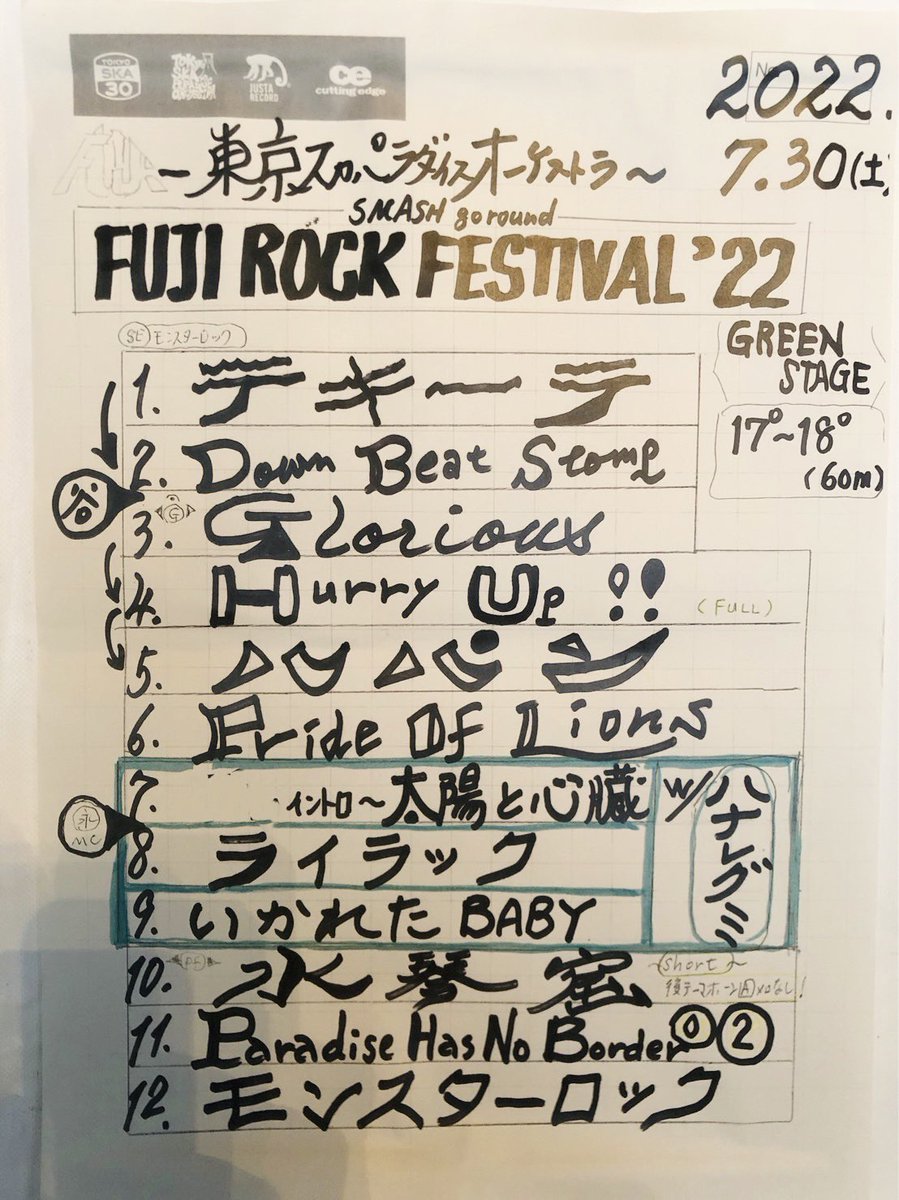 TOKYO SKA 30
JUSTA RECORD
cutting edge
2022.
7.30(土
~東京スカパラダイスオーケストラ~
SMASH go round
FUJI ROCK FESTIVAL'22
SE モンスターロック
GREEN STAGE
17°~18°
(60m)
1. テキーラ
2. Down Beat Stomp
谷
G
3. Glorious
4. Hurry Up !! (FULL)
5. ルパン
6. Pride Of Lions
7. イントロ~太陽と心臓
w/ ハナレグミ
MC
8. ライラック
9. いかれたBABY
10. 水琴窟
~short~
11. Paradise Has No Border 0 2
12. モンスターロック